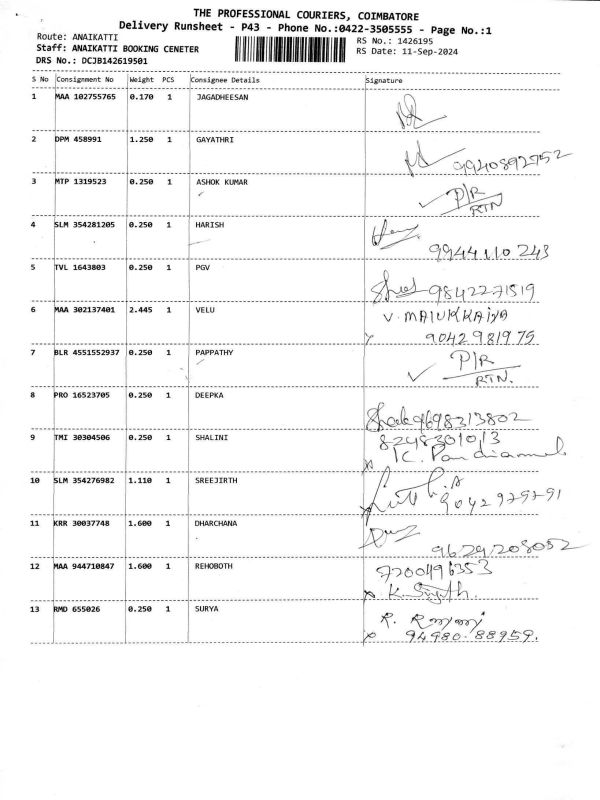 THE PROFESSIONAL COURIERS, COIMBATORE
Delivery Runsheet - P43 - Phone No.:0422-3505555 - Page No.:1
Route: ANAIKATTI
RS No.: 1426195
Staff: ANAIKATTI BOOKING CENETER
RS Date: 11-Sep-2024
DRS No.: DCJB142619501
S No Consignment No Weight PCS Consignee Details Signature
1 MAA 102755765 0.170 1 JAGADHEESAN
2 DPM 458991 1.250 1 GAYATHRI
9940892752
3 MTP 1319523 0.250 1 ASHOK KUMAR
P/R
RTN
4 SLM 354281205 0.250 1 HARISH
9944110243
5 TVL 1643803 0.250 1 PGV
9842271519
6 MAA 302137401 2.445 1 VELU
9042981975
7 BLR 4551552937 0.250 1 PAPPATHY
P/R
RTN.
8 PRO 16523705 0.250 1 DEEPKA
9698313802
9 TMI 30304506 0.250 1 SHALINI
8248301013
10 SLM 354276982 1.110 1 SREEJIRTH
9042979791
11 KRR 30037748 1.600 1 DHARCHANA
9629208052
12 MAA 944710847 1.600 1 REHOBOTH
7200496353
13 RMD 655026 0.250 1 SURYA
94980-88959.